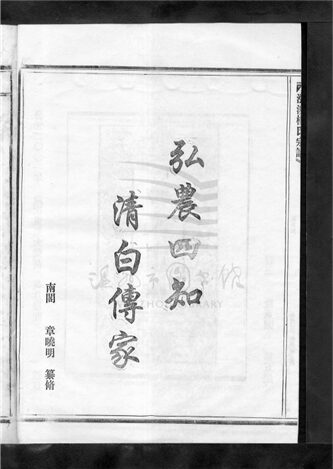 弘農四知
清白傳家
南閣 章曉明 纂脩